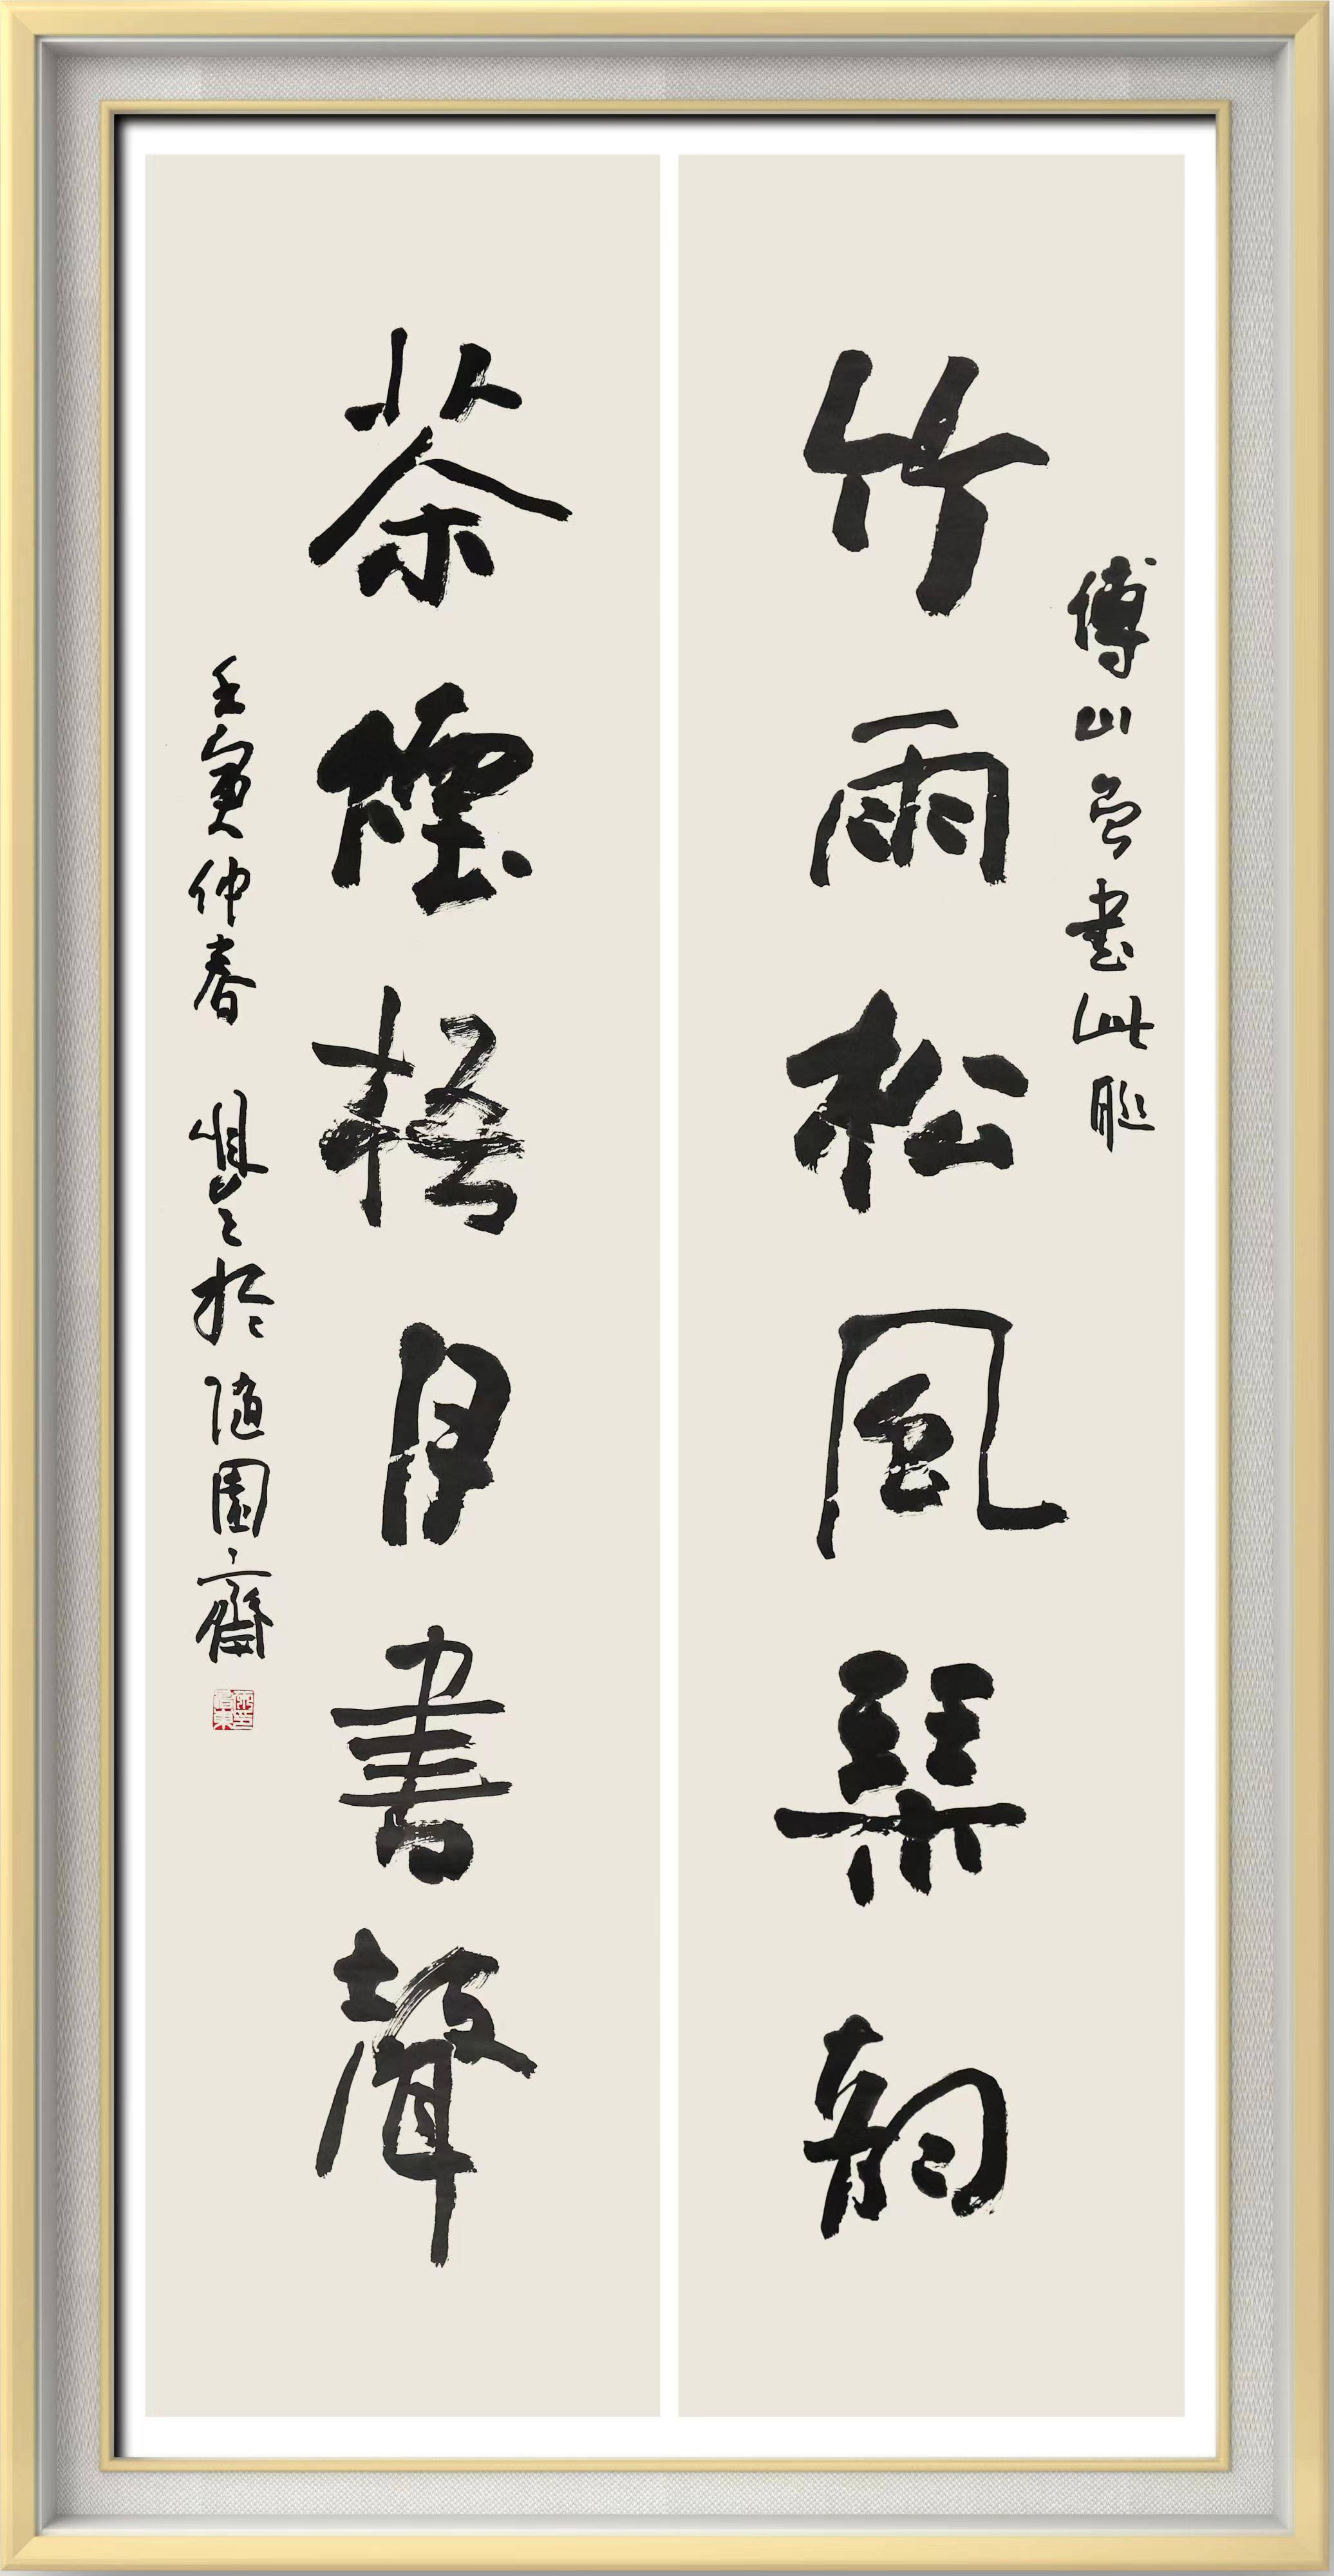 傅山曾書此聯
竹雨松風琴韵
茶煙梧月書聲
壬寅仲春 於隨園齋